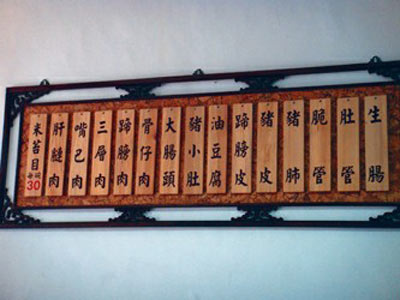 生腸
肚管
脆管
豬肺
豬皮
蹄膀皮
油豆腐
豬小肚
大腸頭
骨仔肉
蹄膀肉
三層肉
嘴己肉
肝臉肉
米苔目
30